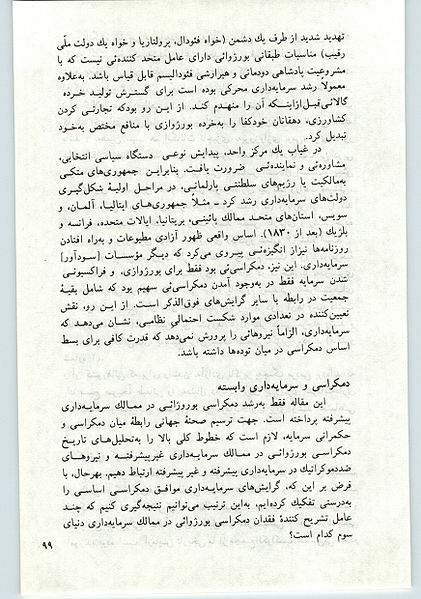 تهدید شدید از طرف یك دشمن (خواه فئودال، پرولتاریا و خواه یك دولت ملّی
رقیب) مناسبات طبقاتی بورژوائی دارای عامل متحد کننده‌ئی نیست که با
مشروعیت پادشاهی دودمانی و هیرارشی فئودالیسم قابل قیاس باشد. به‌علاوه
معمولاً رشد سرمایه‌داری محرکی بوده است برای گسترش تولید خـرده
کالائی‌قبل‌ازاینـکه آن را منهـدم کنـد. از این رو بودکه تجارتـی کردن
کشاورزی، دهقانان خودکفا را به‌خرده بورژوازی با منافع مختص به‌خـود
تبدیل کرد.
در غیاب یك مرکز واحد، پیدایش نوعـی دستگاه سیاسی انتخابی،
مشاوره‌ئی و نماینده‌ئـی ضرورت یافـت. بنابرایـن جمهوری‌های متکـی
به‌مالکیت یا رژیم‌های سلطنتـی پارلمانـی، در مراحـل اولیـهٔ شکل‌گیری
دولت‌های سرمایه‌داری رشد کرد ـ مثـلاً جمهوری‌هـای ایتالیـا، آلمـان، و
سویس، استان‌های متحـد ممالك پائینـی، بریتانیـا، ایالات متحده، فرانسه و
بلژیك (بعد از ۱۸۳۰). اساس واقعی ظهور آزادی مطبوعات و به‌راه افتادن
روزنامه‌ها نیزاز انگیزه‌ئـی پیـروی می‌کرد که دیـگر مؤسسـات [سـودآور]
سرمایه‌داری. این نیز، دمکراسی‌ئی بود فقط برای بورژوازی. و فراکسیونی
شدن سرمایه فقط در به‌وجود آمدن دمکراسی‌ئی سهیم بود که شامل بقیـهٔ
جمعیت در رابطه با سایر گرایش‌های فوق‌الذکر اسـت. از این رو، نقش
تعیین‌کننده در تعدادی موارد شکست احتمالـی نظامـی، نشـان می‌دهـد که
سرمایه‌داری، الزاماً نیروهائی را پرورش نمی‌دهد که قدرت کافی برای بسط
اساس دمکراسی در میان توده‌ها داشته باشد.
دمکراسی و سرمایه‌داری وابسته
این مقاله فقط به‌رشد دمکراسی بورژوائـی در ممـالك سرمایـه‌داری
پیشرفته پرداخته است. جهت ترسیم صحنهٔ جهانی رابطهٔ میان دمکراسی و
حکمرانی سرمایه، لازم است که خطوط کلی بالا را به‌تحلیل‌هـای تاریـخ
دمکراسـی بورژوائـی در ممالك سرمایـه‌داری غیرپیشرفتـه و نیروهـای
ضددموکراتیك در سرمایه‌داری پیشرفته و غیر پیشرفته ارتباط دهیم. بهرحال، با
فرض بر این که، گرایش‌های سرمایـه‌داری موافـق دمکراسـی اساسـی را
به‌درستی تفکیك کرده‌ایم، به‌این ترتیب می‌توانیم نتیجه‌گیری کنیم که چنـد
عامل تشریح کنندهٔ فقدان دمکراسی بورژوائی در ممالك سرمایه‌داری دنیای
سوم کدام است؟
۹۹